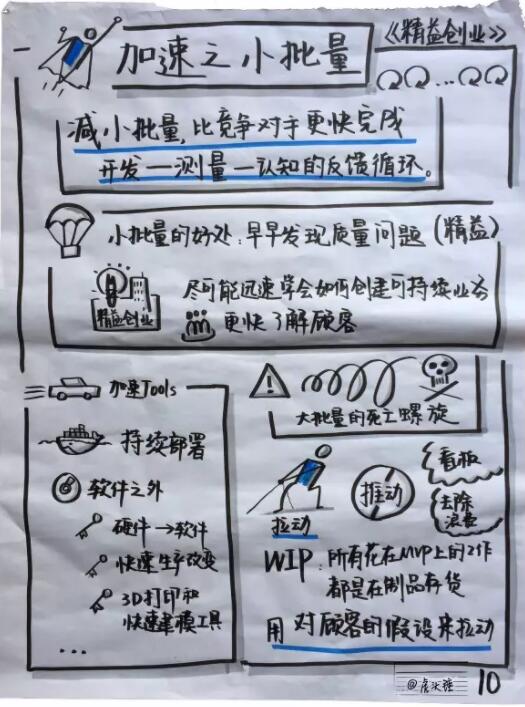 加速之小批量
《精益创业》
减小批量,比竞争对手更快完成
开发—测量—认知的反馈循环。
小批量的好处:早早发现质量问题(精益)
精益创业
尽可能迅速学会如何创建可持续业务
更快了解顾客
加速Tools
持续部署
软件之外
硬件→软件
快速生产改变
3D打印和
快速建模工具
...
大批量的死亡螺旋
拉动
推动
看板
去除
浪费
WIP:所有花在MVP上的工作
都是在制品存货
用对顾客的假设来拉动
10